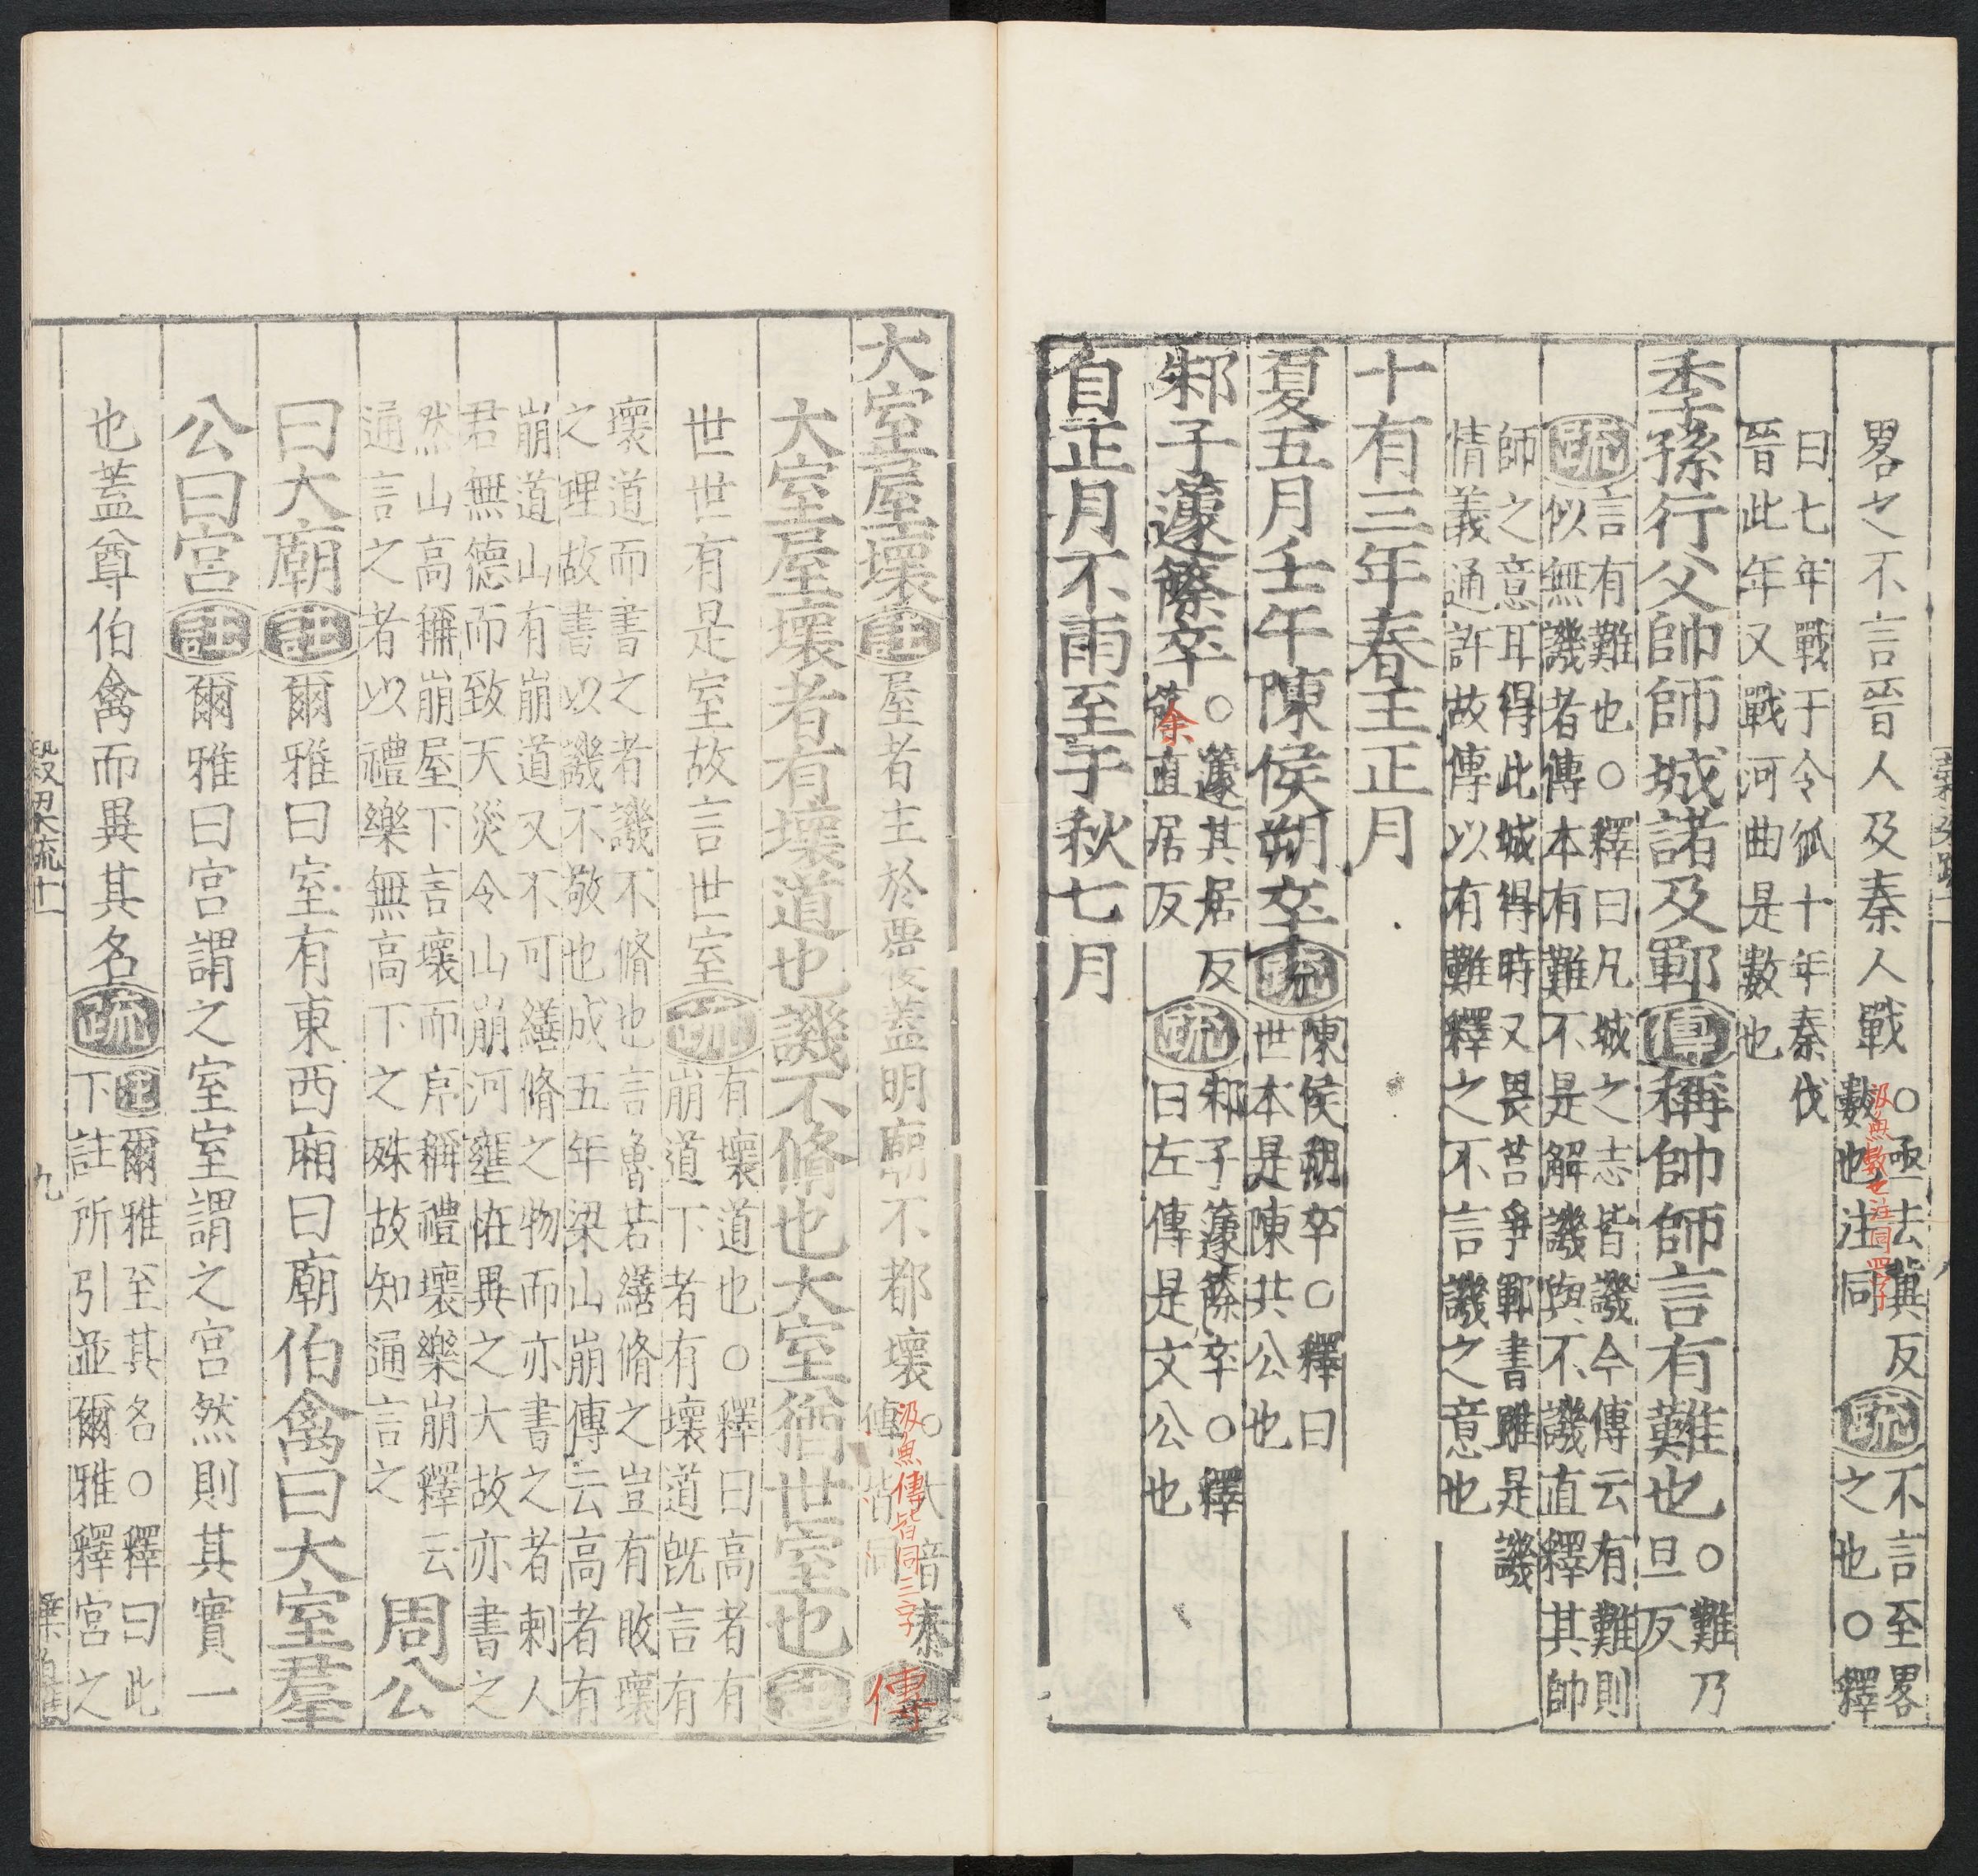 畧之不言晉人及秦人戰○亟去冀反
數也注同
汲無數也注同四字
疏不言至畧
之也○釋
曰七年戰于令狐十年秦伐
晉此年又戰河曲是數也
季孫行父帥師城諸及鄆傳稱帥師言有難也○難乃
旦反
疏言有難也○釋曰凡城之志皆譏今傳云有難則
似無譏者傳本有難不是解譏與不譏直釋其帥
師之意耳得此城得時又畏莒爭鄆書雖是譏
情義通許故傳以有難釋之不言譏之意也
十有三年春王正月
夏五月壬午陳侯朔卒疏陳侯朔卒○釋曰
世本是陳共公也
邾子籧篨卒○籧其居反
篨直居反
余
疏邾子籧篨卒○釋
曰左傳是文公也
自正月不雨至于秋七月
大室屋壞註屋者主於覆蓋明廟不都壞○大音泰
傳皆同
汲無傳皆同三字
傳
大室屋壞者有壞道也譏不脩也大室猶世室也註
世世有是室故言世世室疏有壞道也○釋曰高者有
崩道下者有壞道旣言有
壞道而書之者譏不脩也言魯若繕脩之豈有敗壞
之理故書以譏不敬也成五年梁山崩傳云高者有
崩道山有崩道又不可繕脩之物而亦書之者刺人
君無德而致天災令山崩河壅怪異之大故亦書之
然山高稱崩屋下言壞而序稱禮壞樂崩釋云
通言之者以禮樂無高下之殊故知通言之
周公
曰大廟註爾雅曰室有東西廂曰廟伯禽曰大室羣
公曰宮註爾雅曰宮謂之室室謂之宮然則其實一
也蓋尊伯禽而異其名疏註爾雅至其名○釋曰此
下註所引並爾雅釋宮之
穀梁疏十一
九